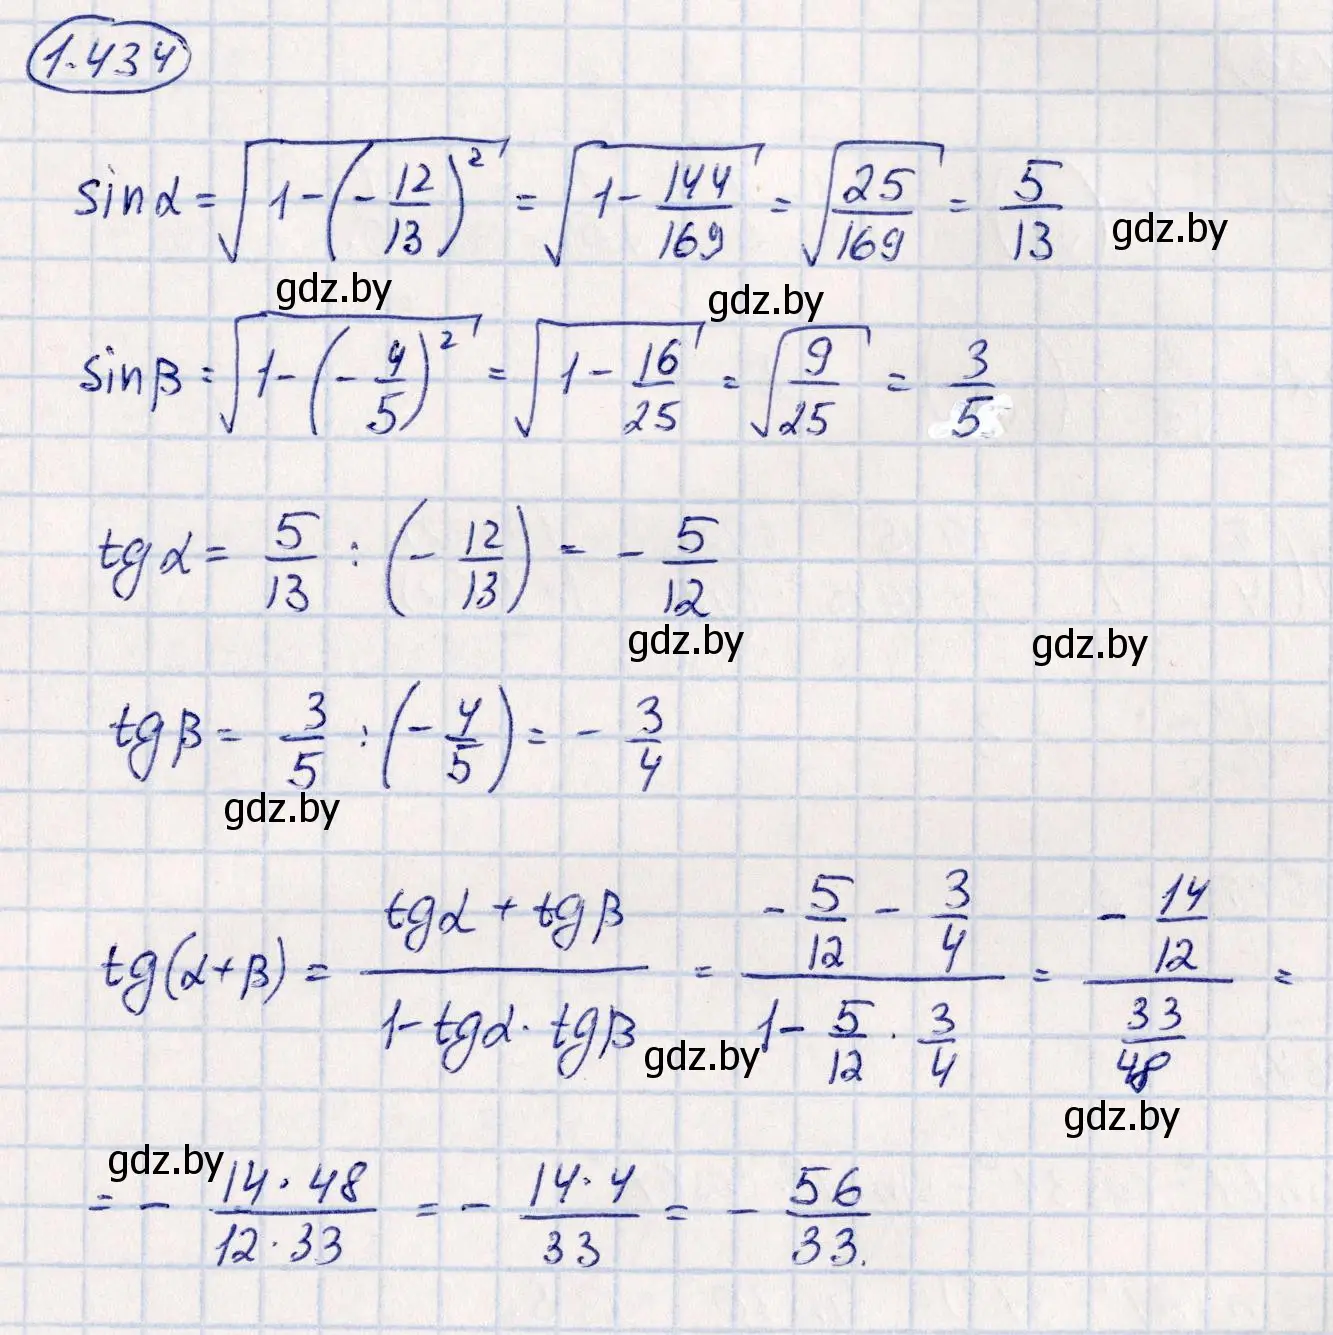 1.434
sinα = √(1-(-12/13)²) = √(1-144/169) = √(25/169) = 5/13
gdz.by
gdz.by gdz.by
sinβ = √(1-(-4/5)²) = √(1-16/25) = √(9/25) = 3/5
tgα = 5/13 : (-12/13) = -5/12
gdz.by gdz.by
tgβ = 3/5 : (-4/5) = -3/4
gdz.by
tg(α+β) = (tgα + tgβ)/(1-tgα·tgβ) = (-5/12 - 3/4)/(1-5/12·3/4) = (-14/12)/(33/48) =
gdz.by
gdz.by
gdz.by
= - (14·48)/(12·33) = - (14·4)/33 = - 56/33.